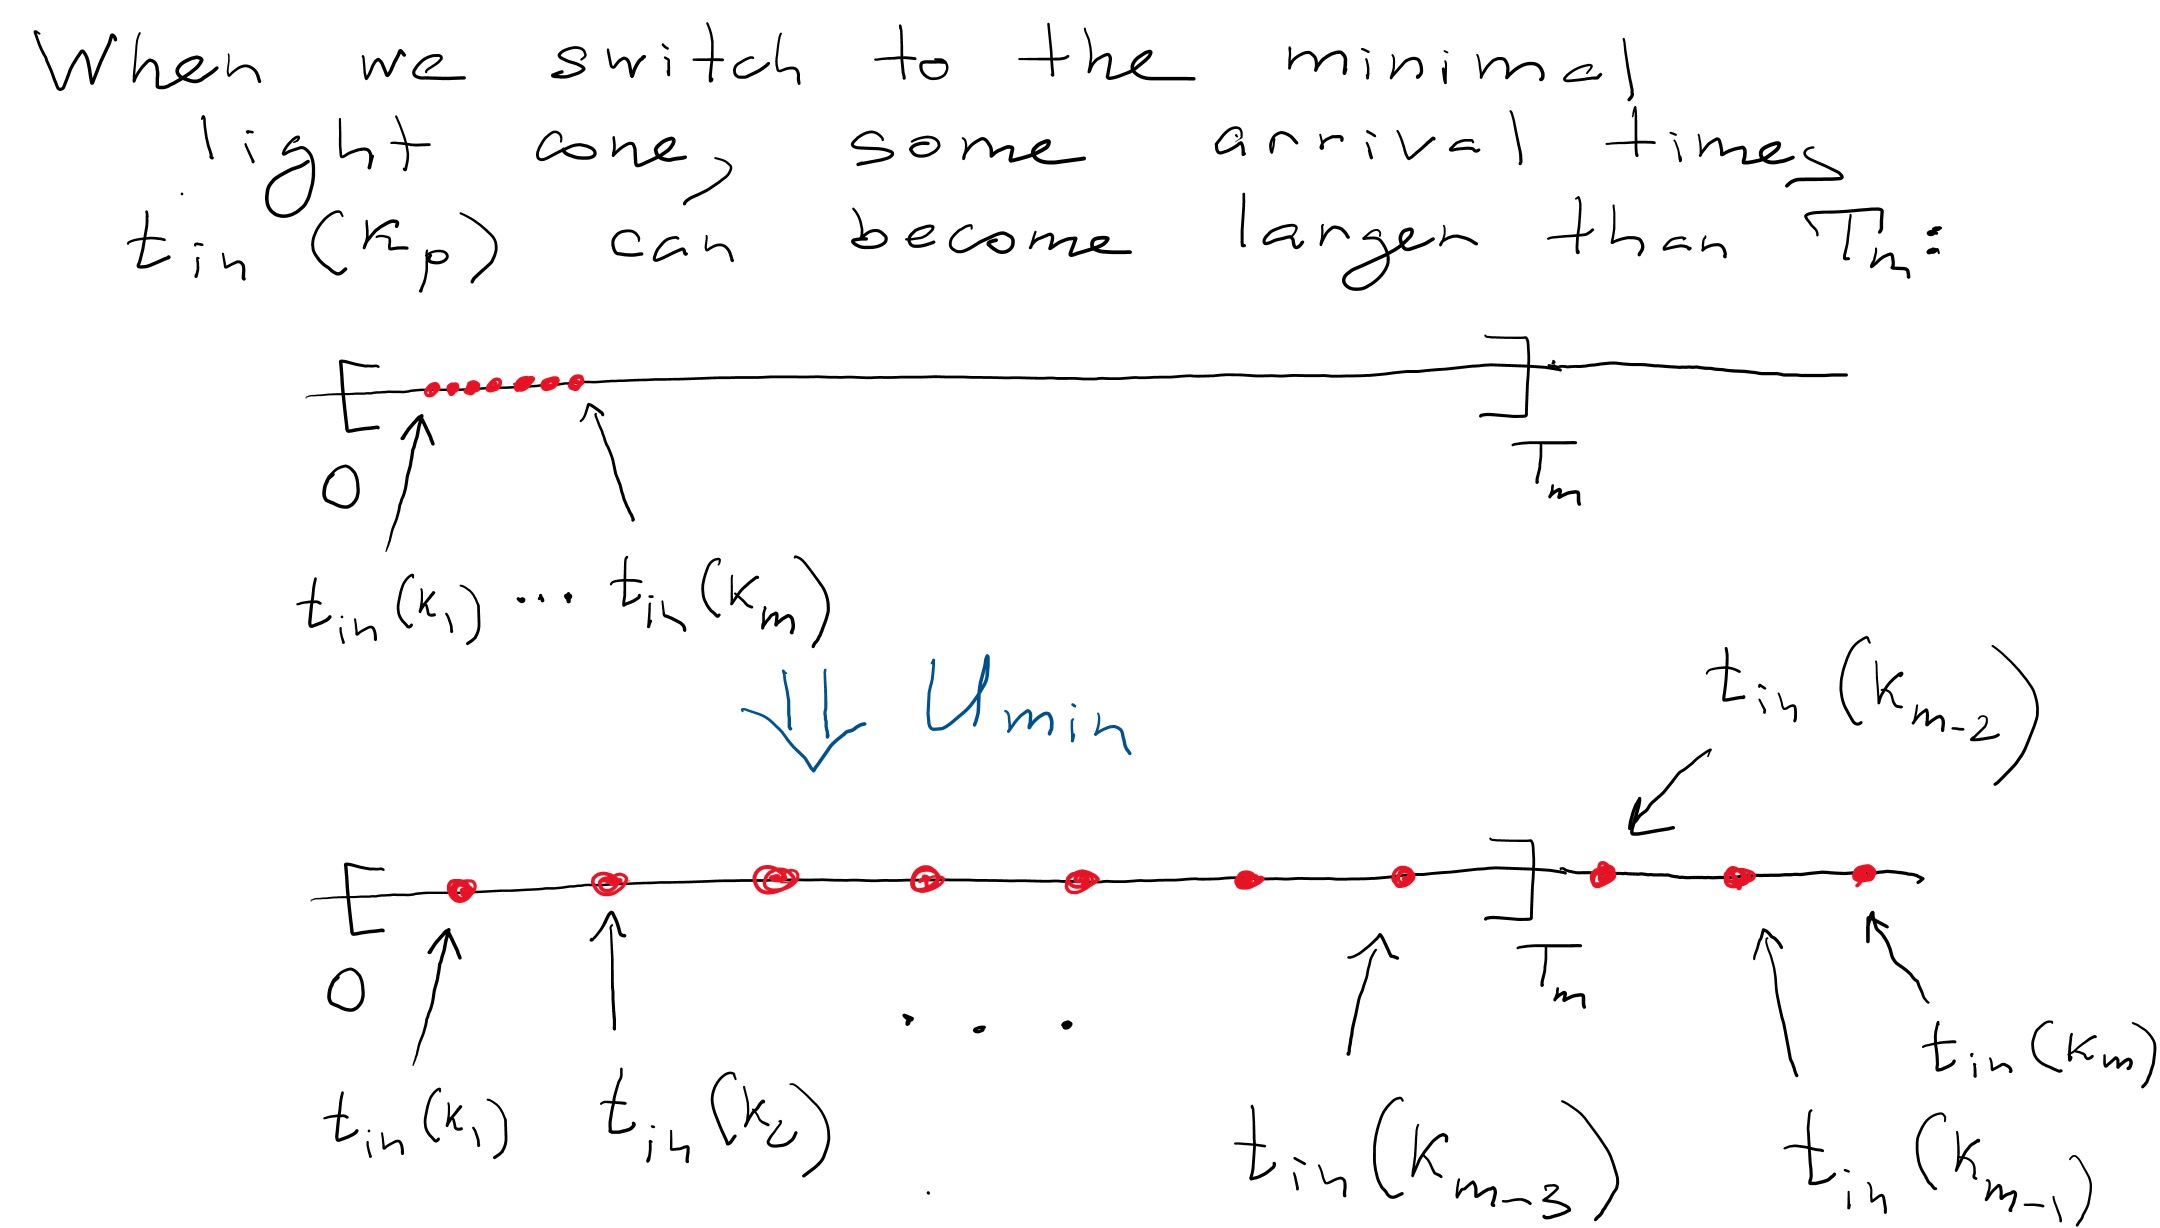 When we switch to the minimal
light cone, some arrival times
t_in (k_p) can become larger than T_m:
0 T_m
t_in (k_1) ... t_in (k_m)
⇓ U_min
t_in (k_{m-2})
0 T_m
t_in (k_m)
t_in (k_1) t_in (k_2) . . . t_in (k_{m-3}) t_in (k_{m-1})